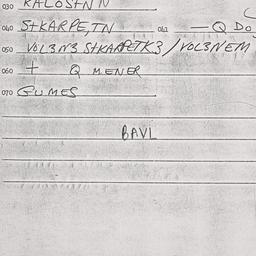 030 KALOSTNN
040 STKARPE,TN 042 — Q DO
050 VOL3N3 STKARPETK3 / VOL3NEM
060 + Q MENER
070 GUMES
BAVL